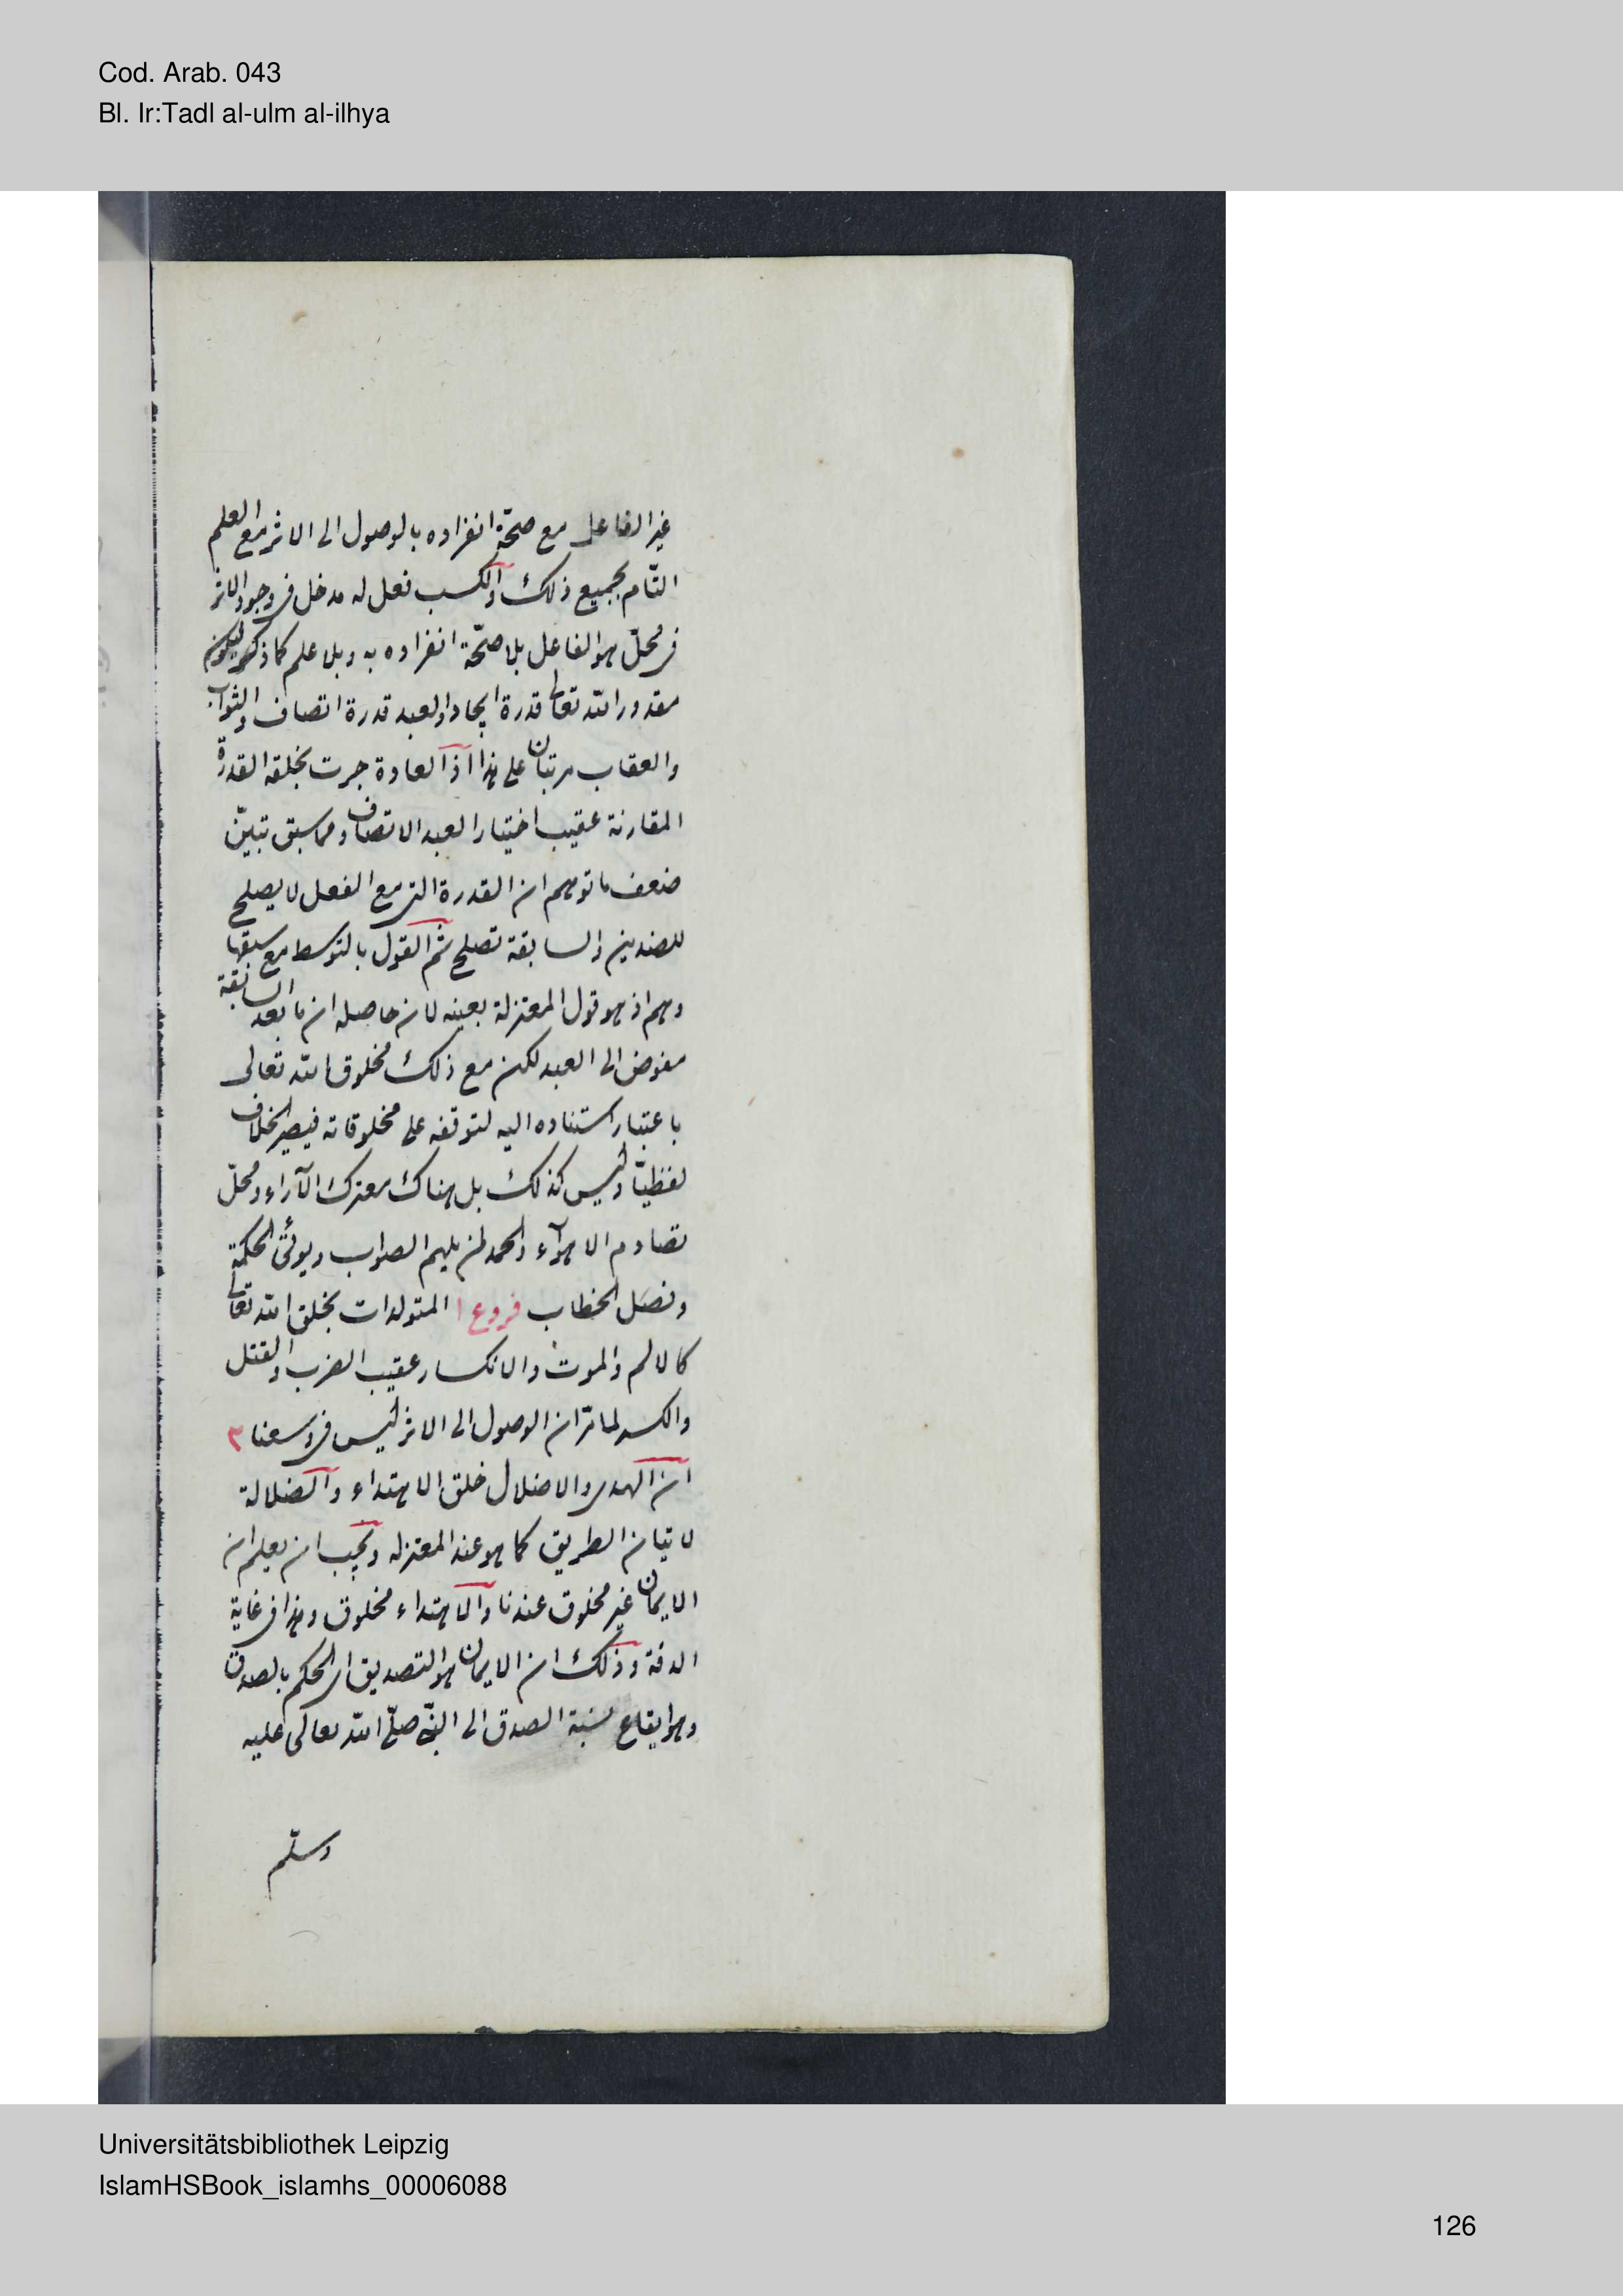 Cod. Arab. 043
Bl. Ir:Tadl al-ulm al-ilhya
غير الفاعل مع صحّة انفراده بالوصول الى الاثر مع العلم
التّام بجميع ذلك والكسب فعل له مدخل في وجود الاثر
في محلّ هو الفاعل بلا صحّة انفراده به وبلا علم كما ذكر فيكون
مقدور الله تعالى قدرة ايجاد ولعبد قدرة اتصاف والثواب
والعقاب مرتبان على هذا اذ العادة جرت بخلقه القدرة
المقارنة عقيب اختيار العبد الاتصاف ومما سبق تبيّن
ضعف ما توهم ان القدرة التي مع الفعل لا يصلح
للضدين والسابقة تصلح ثم القول بالتوسط مع سبقها
وهم اذ هو قول المعتزلة بعينه لان حاصله ان ما بعد السابقة
مفوض الى العبد لكن مع ذلك مخلوق الله تعالى
باعتبار استناده اليه لتوقفه على مخلوقاته فيصير الخلاف
لفظيّا وليس كذلك بل هناك معترك الآراء ومحلّ
تصادم الاهوآء والحمد لمن يلهم الصواب ويؤتى الحكمة
وفصل الخطاب فروع ١ المتولدات بخلق الله تعالى
كالالم والموت والانكسار عقيب الضرب والقتل
والكسر لما مرّ ان الوصول الى الاثر ليس في وسعنا ٢
ان الهدى والاضلال خلق الاهتداء والضلالة
لا تبيان الطريق كما هو عند المعتزله ويجب ان يعلم ان
الايمان غير مخلوق عندنا والاهتداء مخلوق وهذا في غاية
الدقة وذلك ان الايمان هو التصديق اى الحكم بالصدق
وهو ايقاع نسبة الصدق الى النبيّ صلّى الله تعالى عليه
وسلّم
Universitätsbibliothek Leipzig
IslamHSBook_islamhs_00006088
126